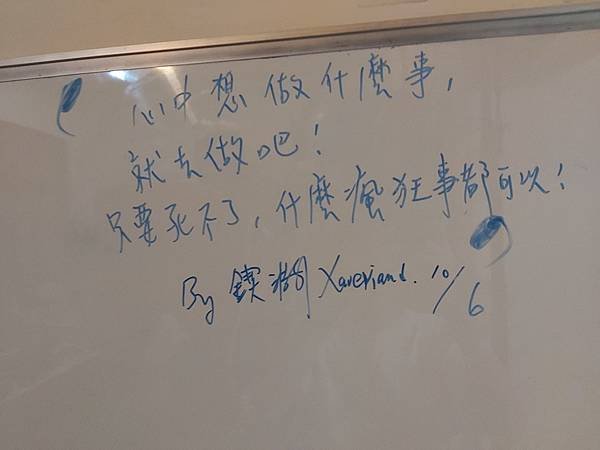 心中想做什麼事,
就去做吧!
只要死不了,什麼瘋狂事都可以!
By Xaveriand. 10/6